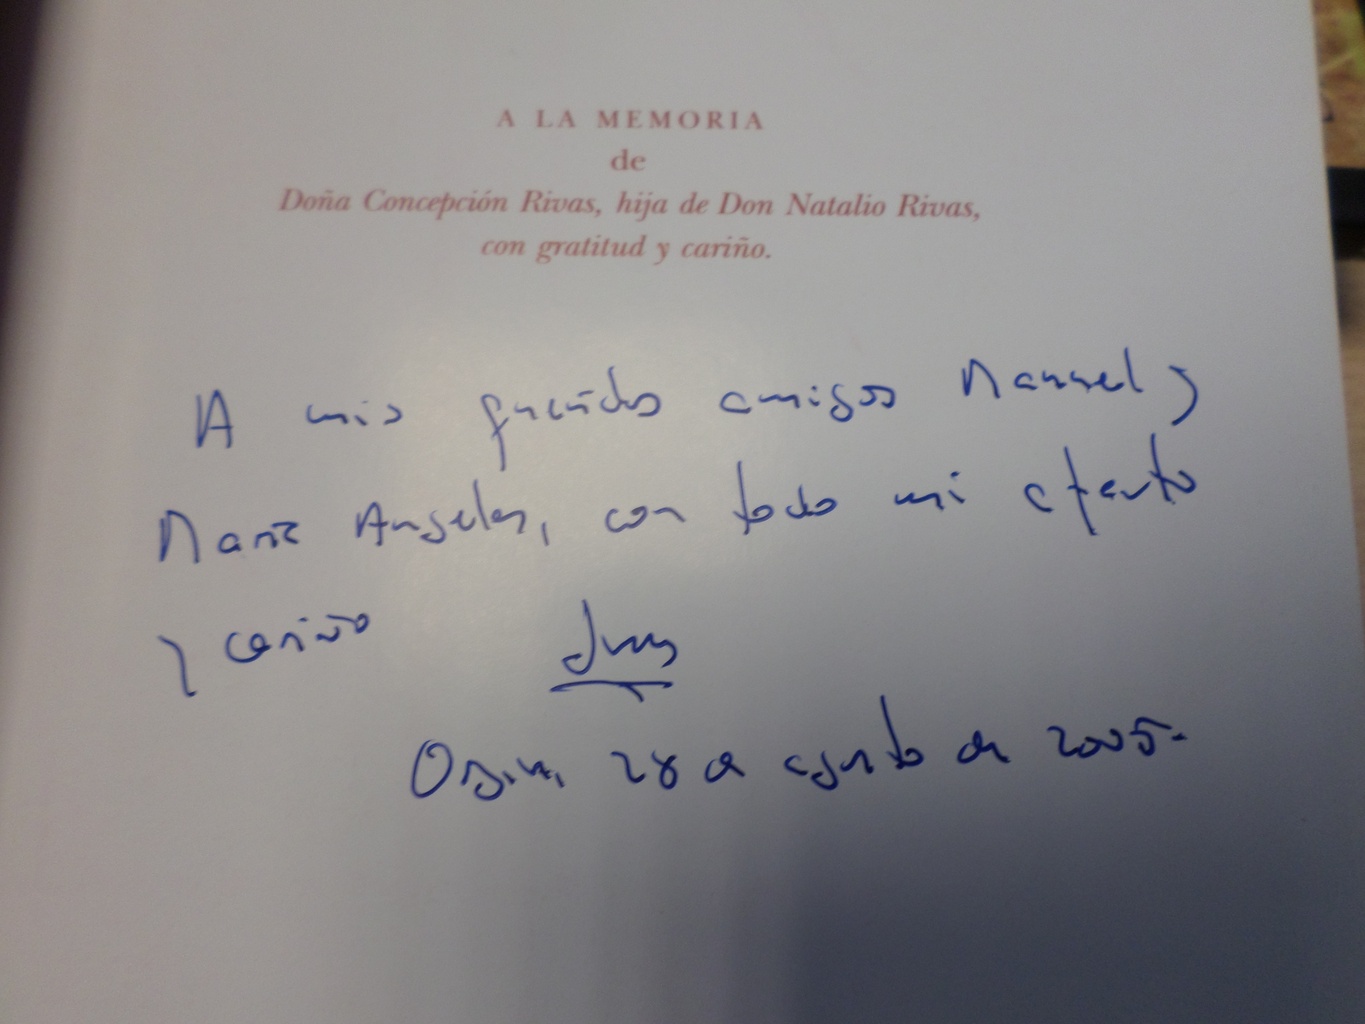 A LA MEMORIA
de
Doña Concepción Rivas, hija de Don Natalio Rivas,
con gratitud y cariño.
A mis queridos amigos Manuel y
María Angeles, con todo mi afecto
y cariño
28 de agosto de 2005.